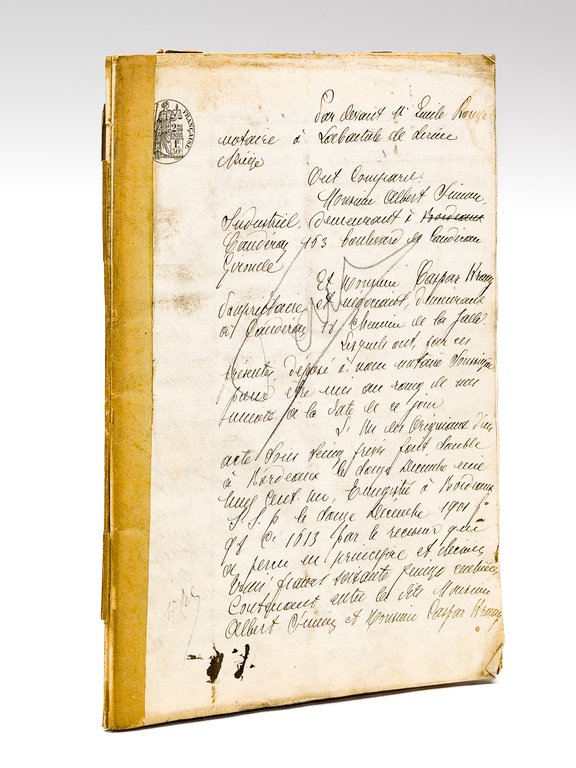 FRANÇAISE
Par devant Me Emile Rouge
notaire à Labastide de
Ont Comparu
Monsieur Albert Simon
Industriel, demeurant à Bordeaux
Caudéran 153 boulevard de Caudéran
Gironde
Et Monsieur Caspar
Propriétaire et négociant demeurant
à Caudéran 12 Chemin de la
Lesquels ont, par ces
présentes déposé à nous notaire Soussigné
pour être mis au rang de nos
minutes à la date de ce jour
L'Un des Originaux d'un
acte Sous Seing privés fait double
à Bordeaux le douze Decembre mil
neuf cent un, Enregistré à Bordeaux
S.S.P. le douze Decembre 1901 fo
98 C. 1613 par le receveur qui
a perçu en principal et décimes
francs soixante quinze centimes
Contenant entre les dits Monsieur
Albert Simon et Monsieur Caspar